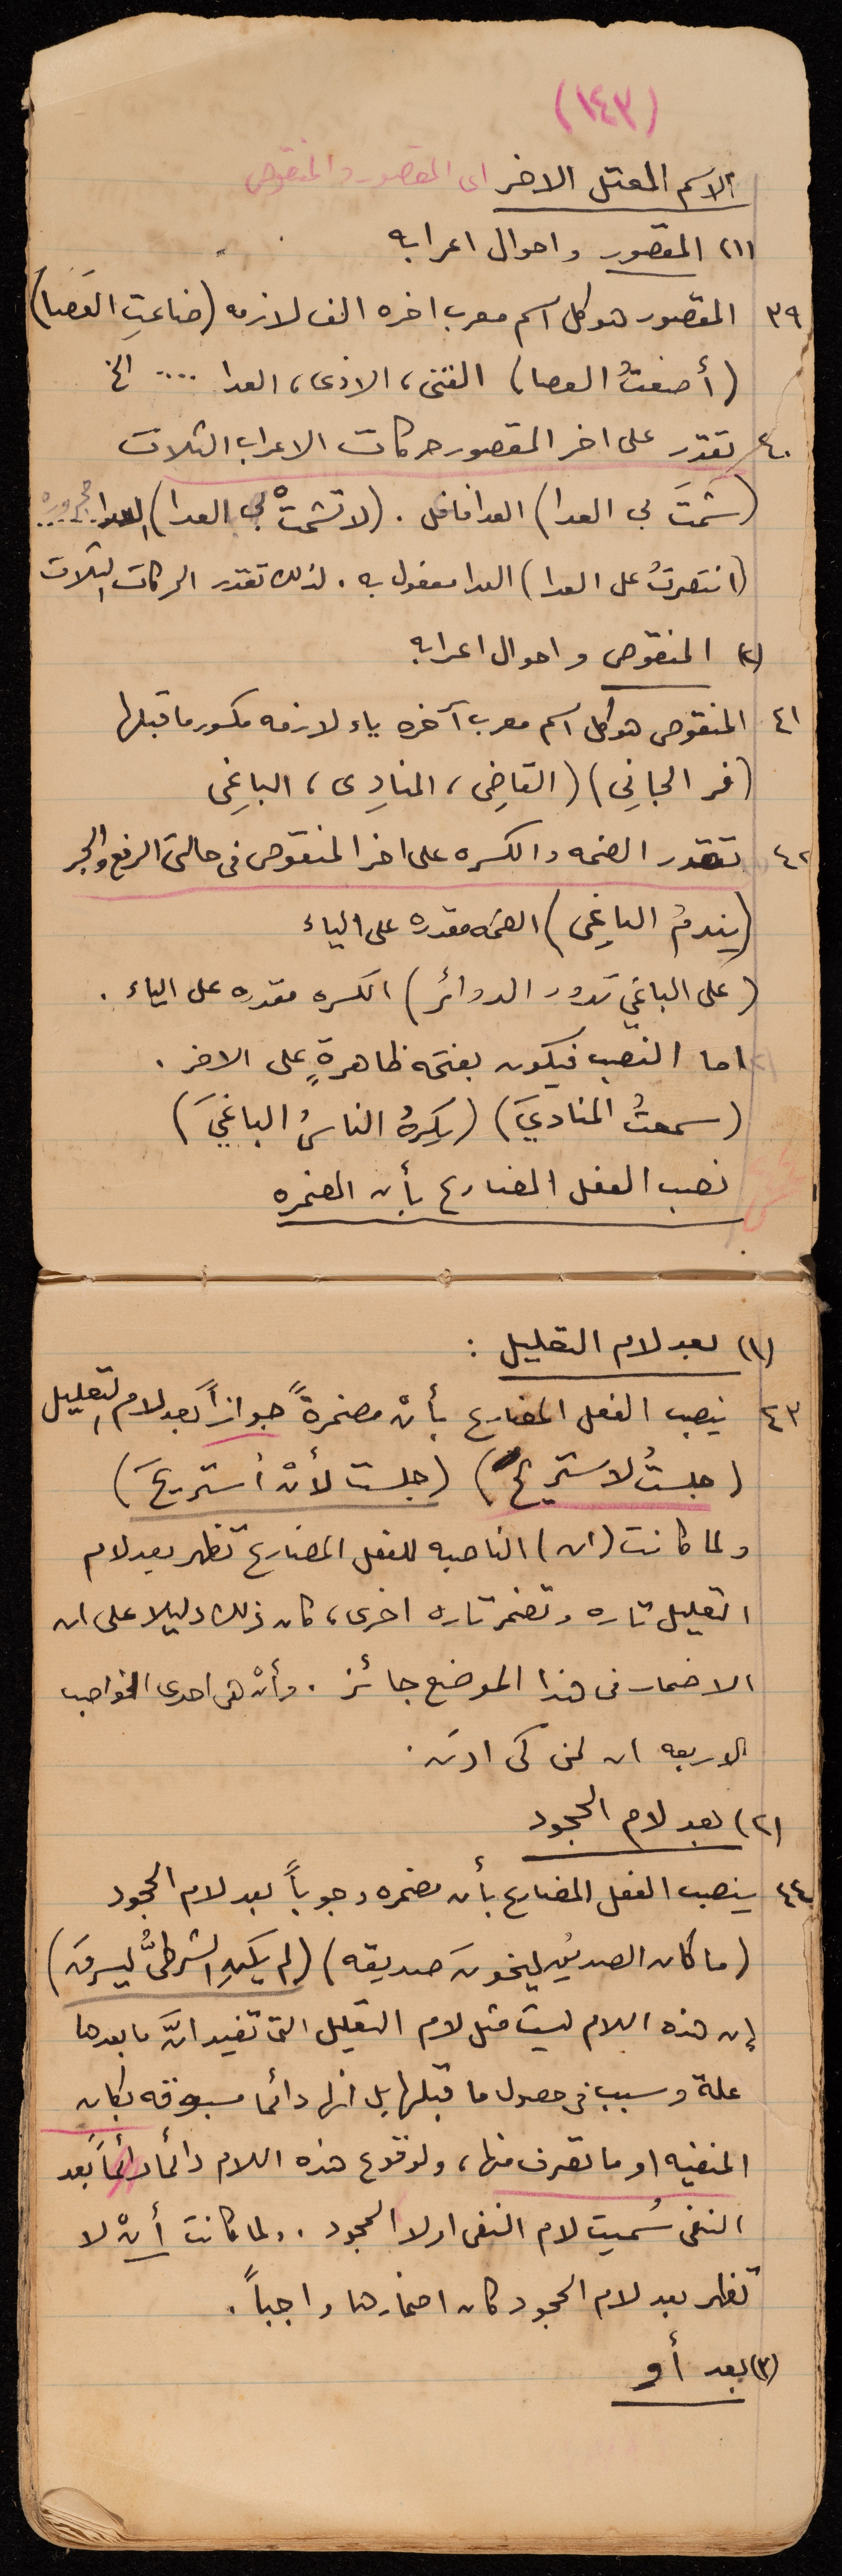 (١٤٣)
الاسم المعتل الاخر اى المقصور والمنقوص
(١) المقصور واحوال اعرابه
٣٩ المقصور هو كل اسم معرب اخره الف لازمه (ضاعتِ العَصا)
(أضعتُ العصا) الفتى، الاذى، العدا .... الخ
٤٠ تقدّر على اخر المقصور حركات الاعراب الثلاث
(شَمتَ بي العدا) العدا فاعل . (لا تشمتْ بي العدا) العدا
(انتصرتُ على العدا) العدا مفعول به . لذلك تقدر الحركات الثلاث
(٢) المنقوص واحوال اعرابه
٤١ المنقوص هو كل اسم معرب آخره ياء لازمه مكسور ما قبلها
(فر الجانِي) (القاضِى، المنادِى، الباغِى
٤٢ تقدر الضمه والكسره على اخر المنقوص فى حالتى الرفع والجر
(يندمُ الباغِى) الضمه مقدره على الياء
(على الباغي تدور الدوائر) الكسره مقدره على الياء .
اما النصب فيكون بفتحه ظاهرةٍ على الاخر .
(سمعتُ المناديَ) (يكرهُ الناسُ الباغيَ)
نصب الفعل المضارع بأن المضمره
(١) بعد لام التعليل :
٤٣ ينصب الفعل المضارع بأنْ مضمرةً جوازاً بعد لام التعليل
(جلستُ لاستريح) (جلست لأنْ أستريحَ)
ولما كانت (ان) الناصبه للفعل المضارع تظهر بعد لام
التعليل تاره وتضمر تاره اخرى، كان ذلك دليلا على ان
الاضمار فى هذا الموضع جائز . وأنْ هى احدى النواصب
الاربعه ان لن كى اذن .
(٢) بعد لام الجحود
٤٤ ينصب الفعل المضارع بأن مضمره وجوباً بعد لام الجحود
(ما كان الصديقُ ليخونَ صديقه) (لم يكنِ الشرطىُّ ليسرقَ)
إن هذه اللام ليست مثل لام التعليل التى تفيد انَّ ما بعدها
علة وسبب فى حصول ما قبلها بل انها دائما مسبوقه بكان
المنفيه او ما تصرف منها، ولوقوع هذه اللام دائما دائماً بعد
النفى سُميت لام النفى او لا الجحود .. ولما كانت أنْ لا
تظهر بعد لام الجحود كان اضمارها واجباً .
(٣) بعد أو